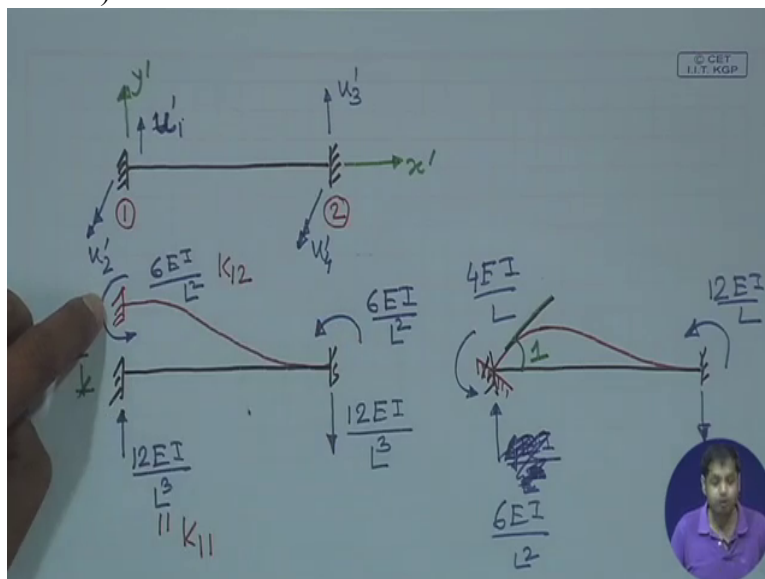 © CET
I.I.T. KGP
y'
u'₁
u'₃
x'
①
②
u'₂
u'₄
6EI/L² K₁₂
6EI/L²
k
12EI/L³
" K₁₁
12EI/L³
4EI/L
1
12EI/L
6EI/L²